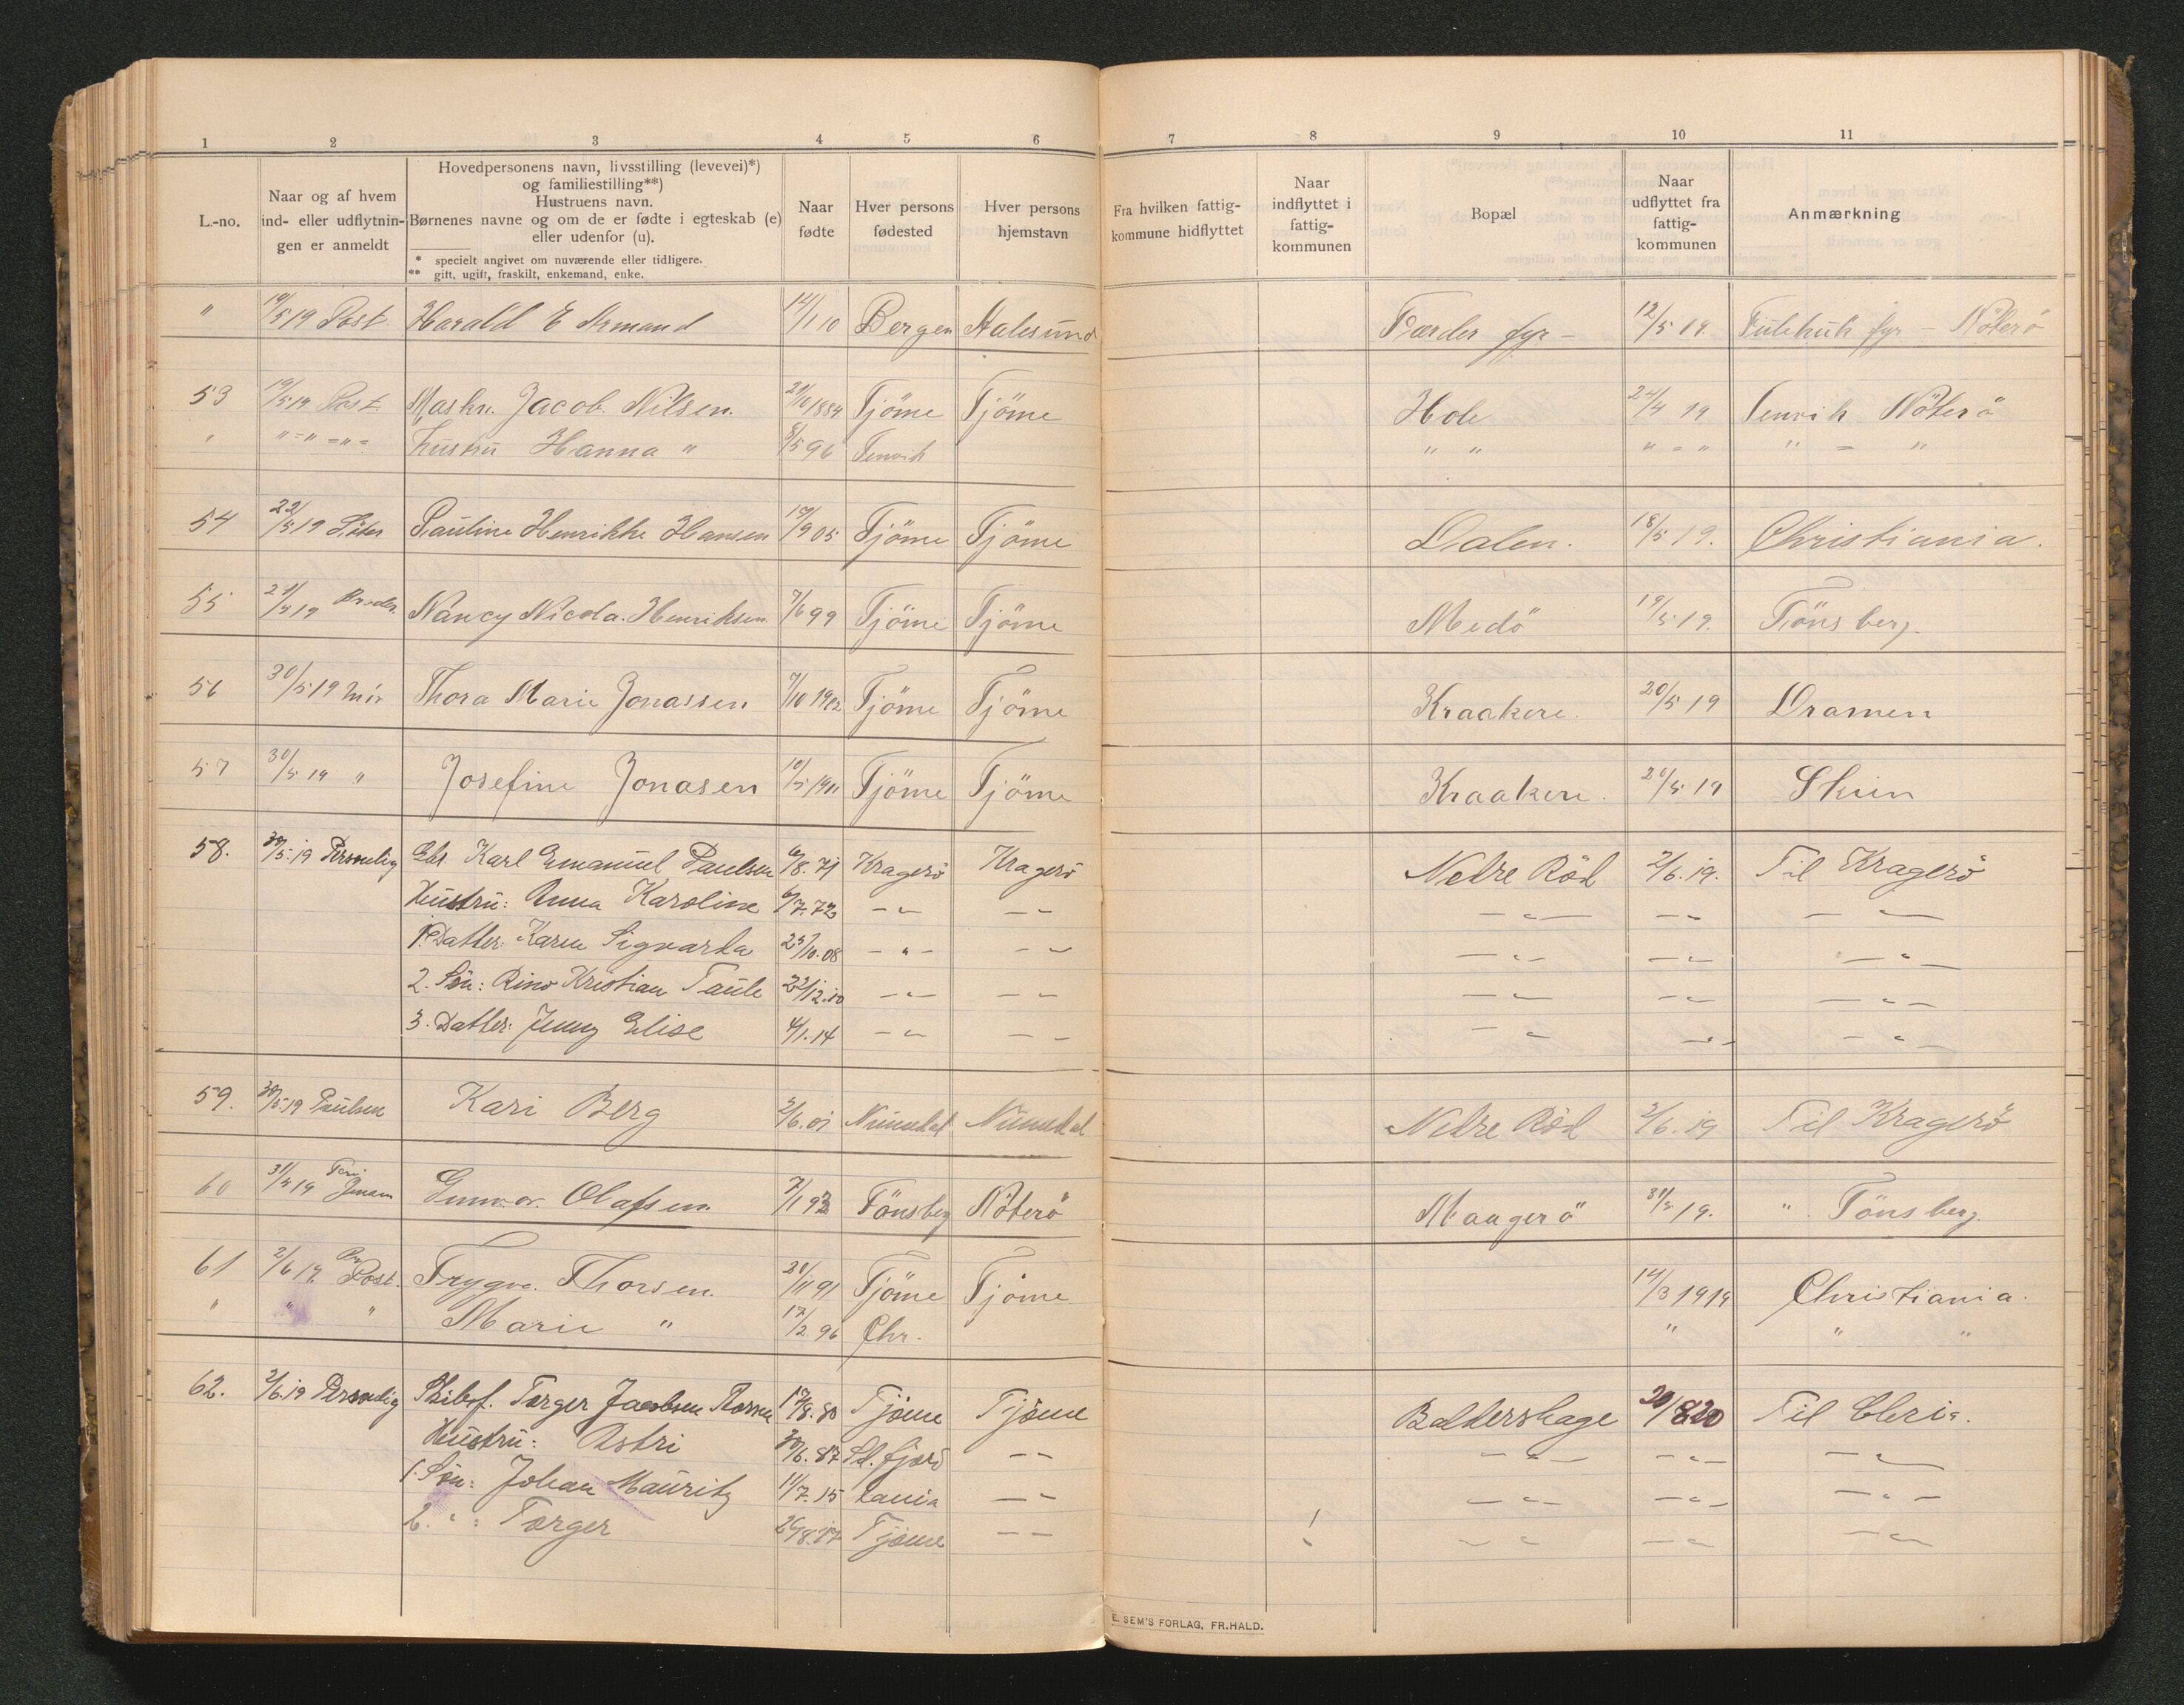 1 2 3 4 5 6 7 8 9 10 11
L.-no.
Naar og af hvem
ind- eller udflytnin-
gen er anmeldt
Hovedpersonens navn, livsstilling (levevei)*)
og familiestilling**)
Hustruens navn.
Børnenes navne og om de er fødte i egteskab (e)
eller udenfor (u).
* specielt angivet om nuværende eller tidligere.
** gift, ugift, fraskilt, enkemand, enke.
Naar
fødte
Hver persons
fødested
Hver persons
hjemstavn
Fra hvilken fattig-
kommune hidflyttet
Naar
indflyttet i
fattig-
kommunen
Bopæl
Naar
udflyttet fra
fattig-
kommunen
Anmærkning
" 19/5 19 Post Harald E Armand 14/1 10 Bergen Aalesund Færder fyr - 12/5 19. Fulehuk fyr - Nöterö
53 19/5 19 Post Maskn. Jacob Nilsen. 1884 Tjöme Tjöme Hole 24/4 19 Tenvik Nöterö
" " = " = " = Hustru Hanna " 8/5 96 Tenvik " " " = " " = "
54 22/5 19 Pauline Henrikke Hansen 19/9 05 Tjöme Tjöme Dalen. 18/5 19. Christiania.
55 21/5 19 Broder. Nancy Nicola. Henriksen 7/6 99 Tjöme Tjöme Medö 19/5 19. Tönsberg.
56 30/5 19 Mor Thora Marie Jonassen 7/10 1902 Tjöme Tjöme Kraakere. 20/5 19 Dramen
57 30/5 19 " Josefine Jonasen 10/5 1911 Tjöme Tjöme Kraakere. 20/5 19 Skien
58. 30/5.19 Personlig Gbr. Karl Emanuel Paulsen 6/8.71 Kragerö Kragerö Nedre Röd 2/6.19. Til Kragerö
Hustru: Anna Karoline 6/7.72 - " - - " - " - - " - - " -
1. Datter: Karen Sigvarda 25/10.08 - " - - " - " - - " - - " -
2. Sön: Rino Kristian Taule 22/12.10 - " - - " - - " - - " - - " -
3. Datter: Jenny Elise 4/1.14 - " - - - - " - " - - " -
59. 30/5.19 Paulsen Kari Berg 2/6.01 Numedal Numedal Nedre Röd 2/6.19 Til Kragerö
60 31/5 19 Gunvor. Olafsen. 7/1 93 Tönsberg Nöterö Maagerö 31/5 19. " Tönsberg.
61 2/6 19 Post. Trygve. Thorsen. 20/11 91 Tjöme Tjöme 14/3 1919 Christiania.
" " " Marie " 17/2 96 Chr. " " "
62. 2/6.19 Personlig Skibsf. Torger Jacobsen 17/8.80 Tjöme Tjöme Baldershage 20/8 20 Til Chria.
Hustru: Astri 30/6.87 Sd.fjord - - - " - - " - - " -
1. Sön: Johan Mauritz 11/7.15 - " - " - - " - - " -
2. " : Torger 26/8.17 Tjöme - - - " - " - - " -
E. SEM'S FORLAG, FR.HALD.